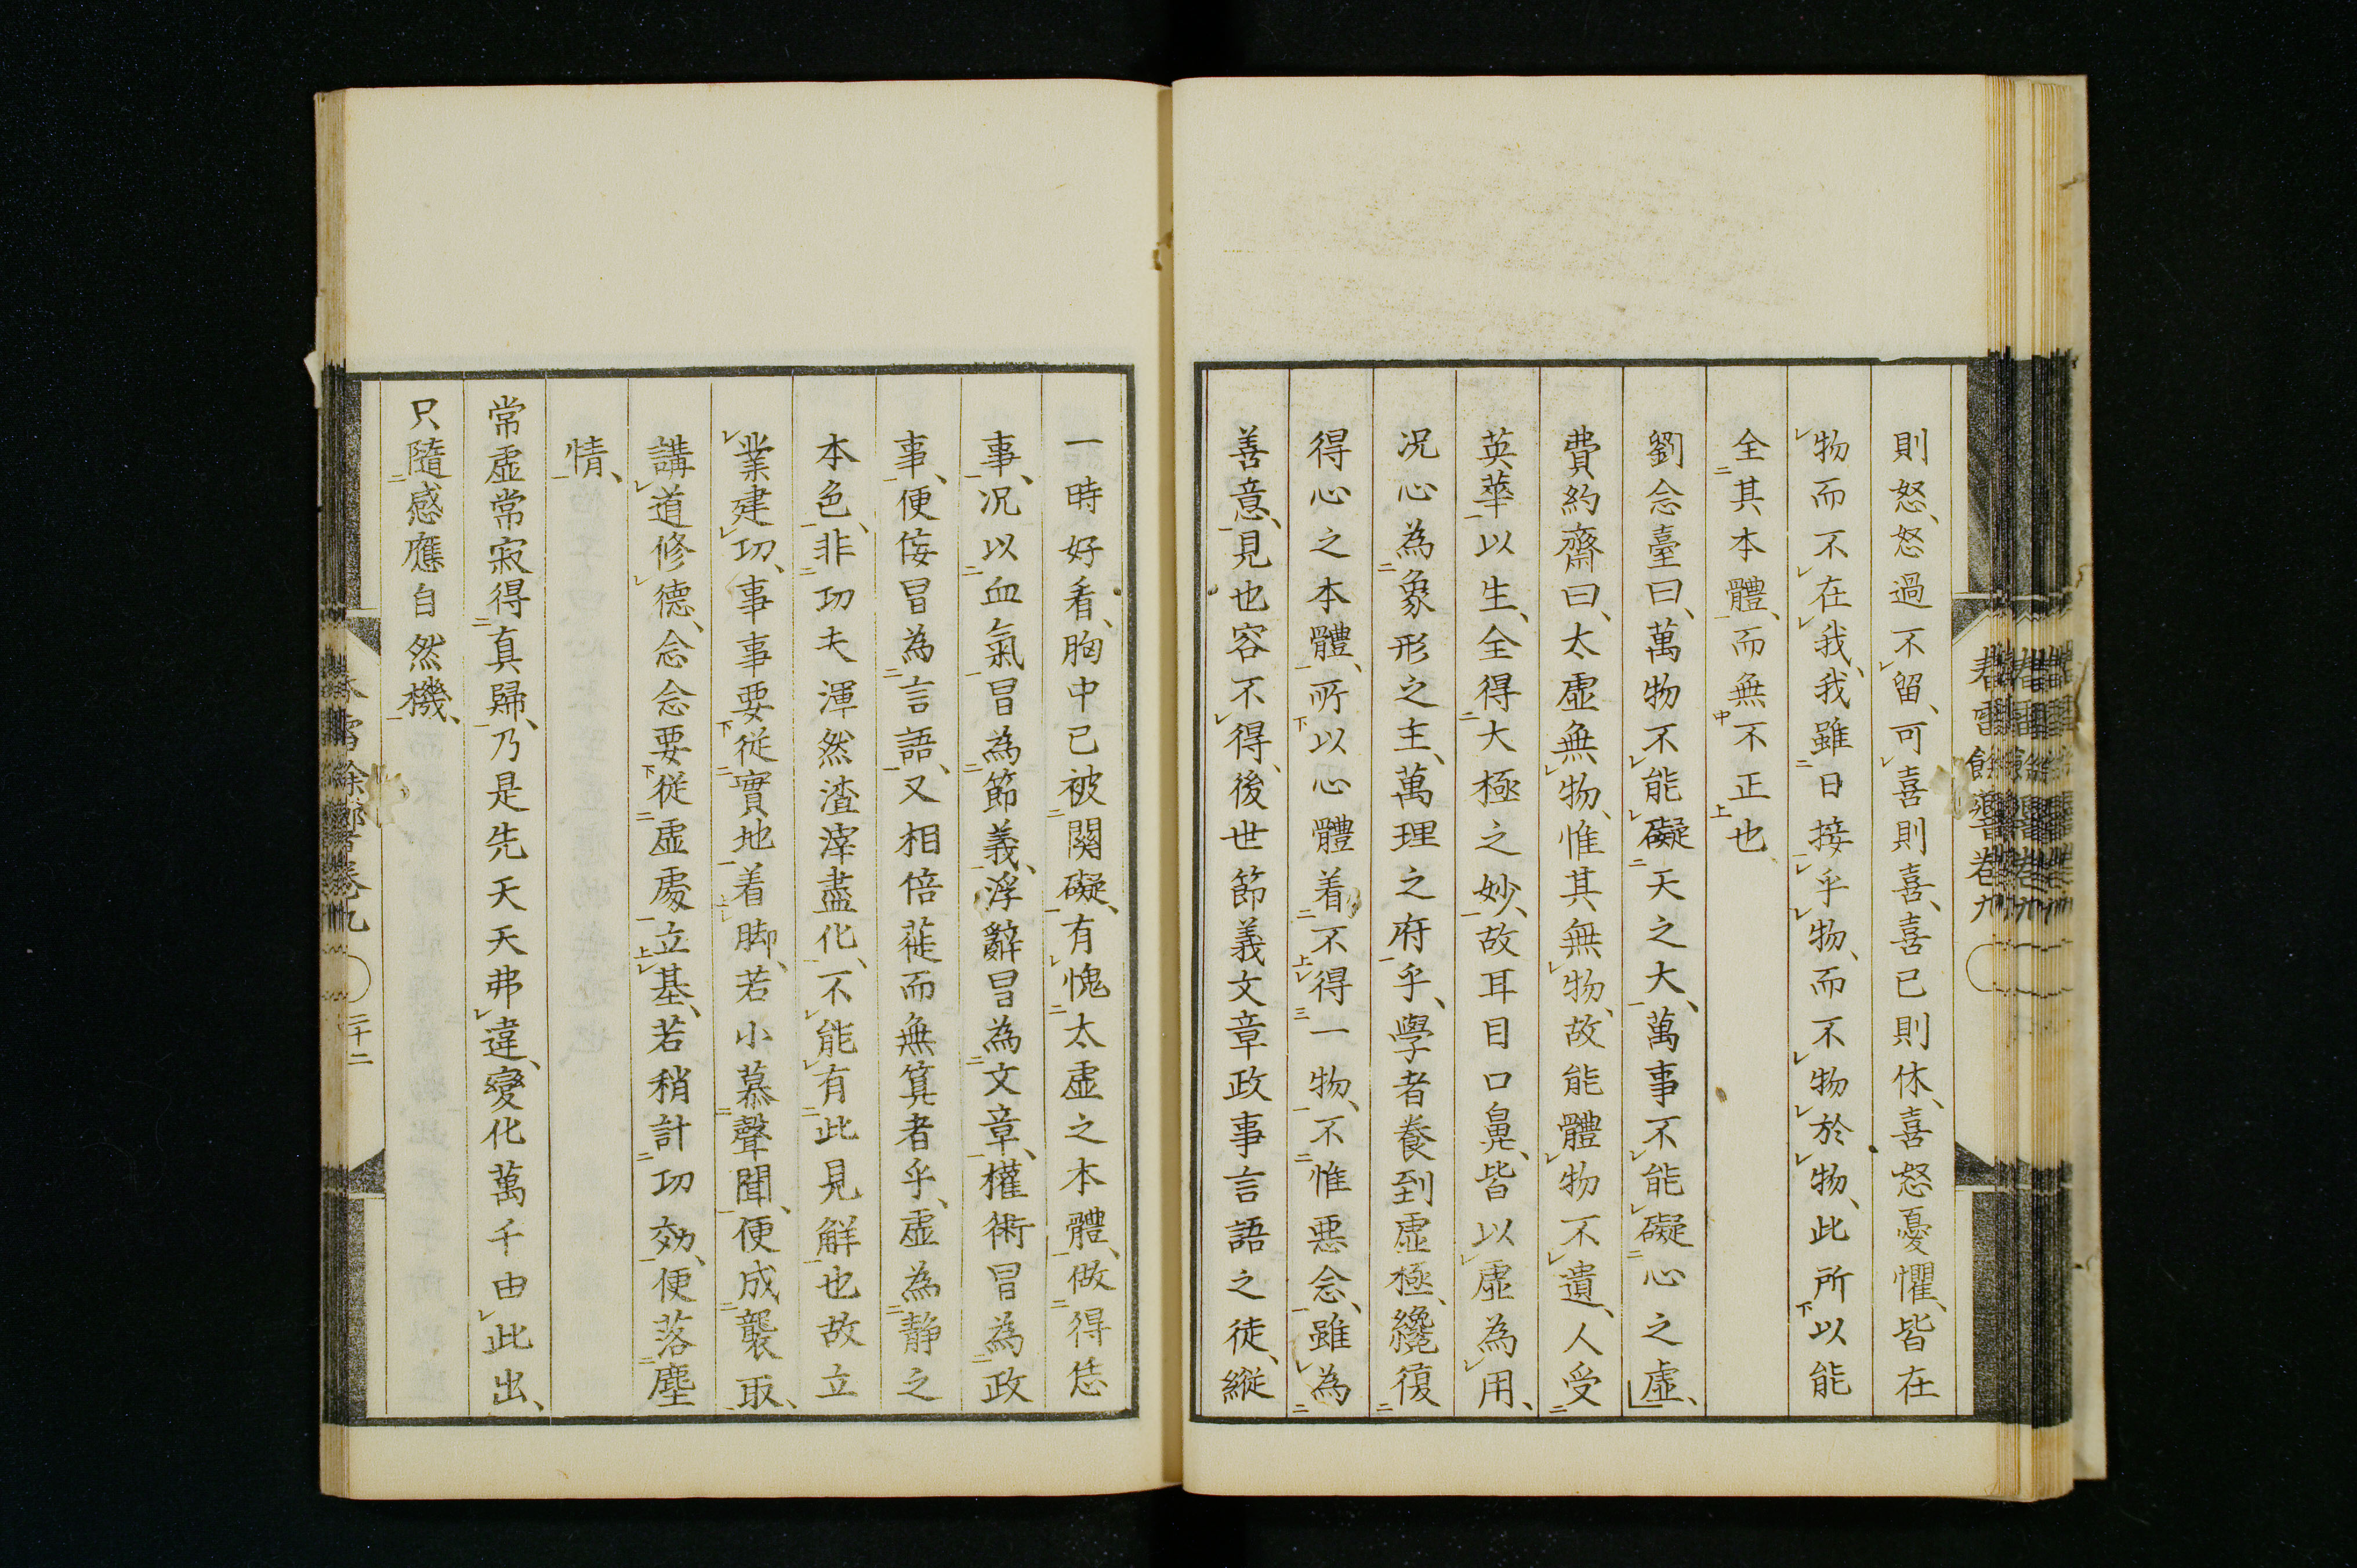 則怒、怒過不留、可喜則喜、喜已則休、喜怒憂懼、皆在
物而不在我、我雖日接乎物、而不物於物、此所以能
全其本體、而無不正也、
劉念臺曰、萬物不能礙天之大、萬事不能礙心之虛、
費約齋曰、太虛無物、惟其無物、故能體物不遺、人受
英華以生、全得大極之妙、故耳目口鼻、皆以虛為用、
况心為象形之主、萬理之府乎、學者養到虛極、纔復
得心之本體、所以心體着不得一物、不惟惡念、雖為
善意、見也容不得、後世節義文章政事言語之徒、縱
一時好看、胸中已被關礙、有愧太虛之本體、做得恁
事、况以血氣冒為節義、浮辭冒為文章、權術冒為政
事、便佞冒為言語、又相倍蓰而無算者乎、虛為靜之
本色、非功夫渾然渣滓盡化、不能有此見解也故立
業建功、事事要從實地着脚、若小慕聲聞、便成襲取、
講道修德、念念要從虛處立基、若稍計功効、便落塵
情、
常虛常寂得真歸、乃是先天天弗違、變化萬千由此出、
只隨感應自然機、
卷九
二十二